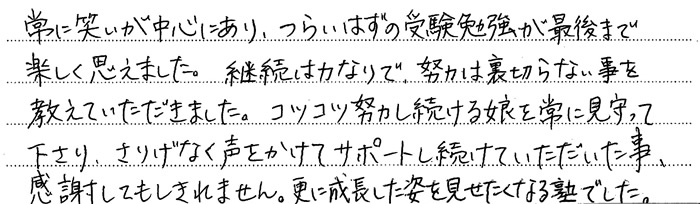 常に笑いが中心にあり、つらいはずの受験勉強が最後まで
楽しく思えました。継続は力なりで、努力は裏切らない事を
教えていただきました。コツコツ努力し続ける娘を常に見守って
下さり、さりげなく声をかけてサポートし続けていただいた事、
感謝してもしきれません。更に成長した姿を見せたくなる塾でした。